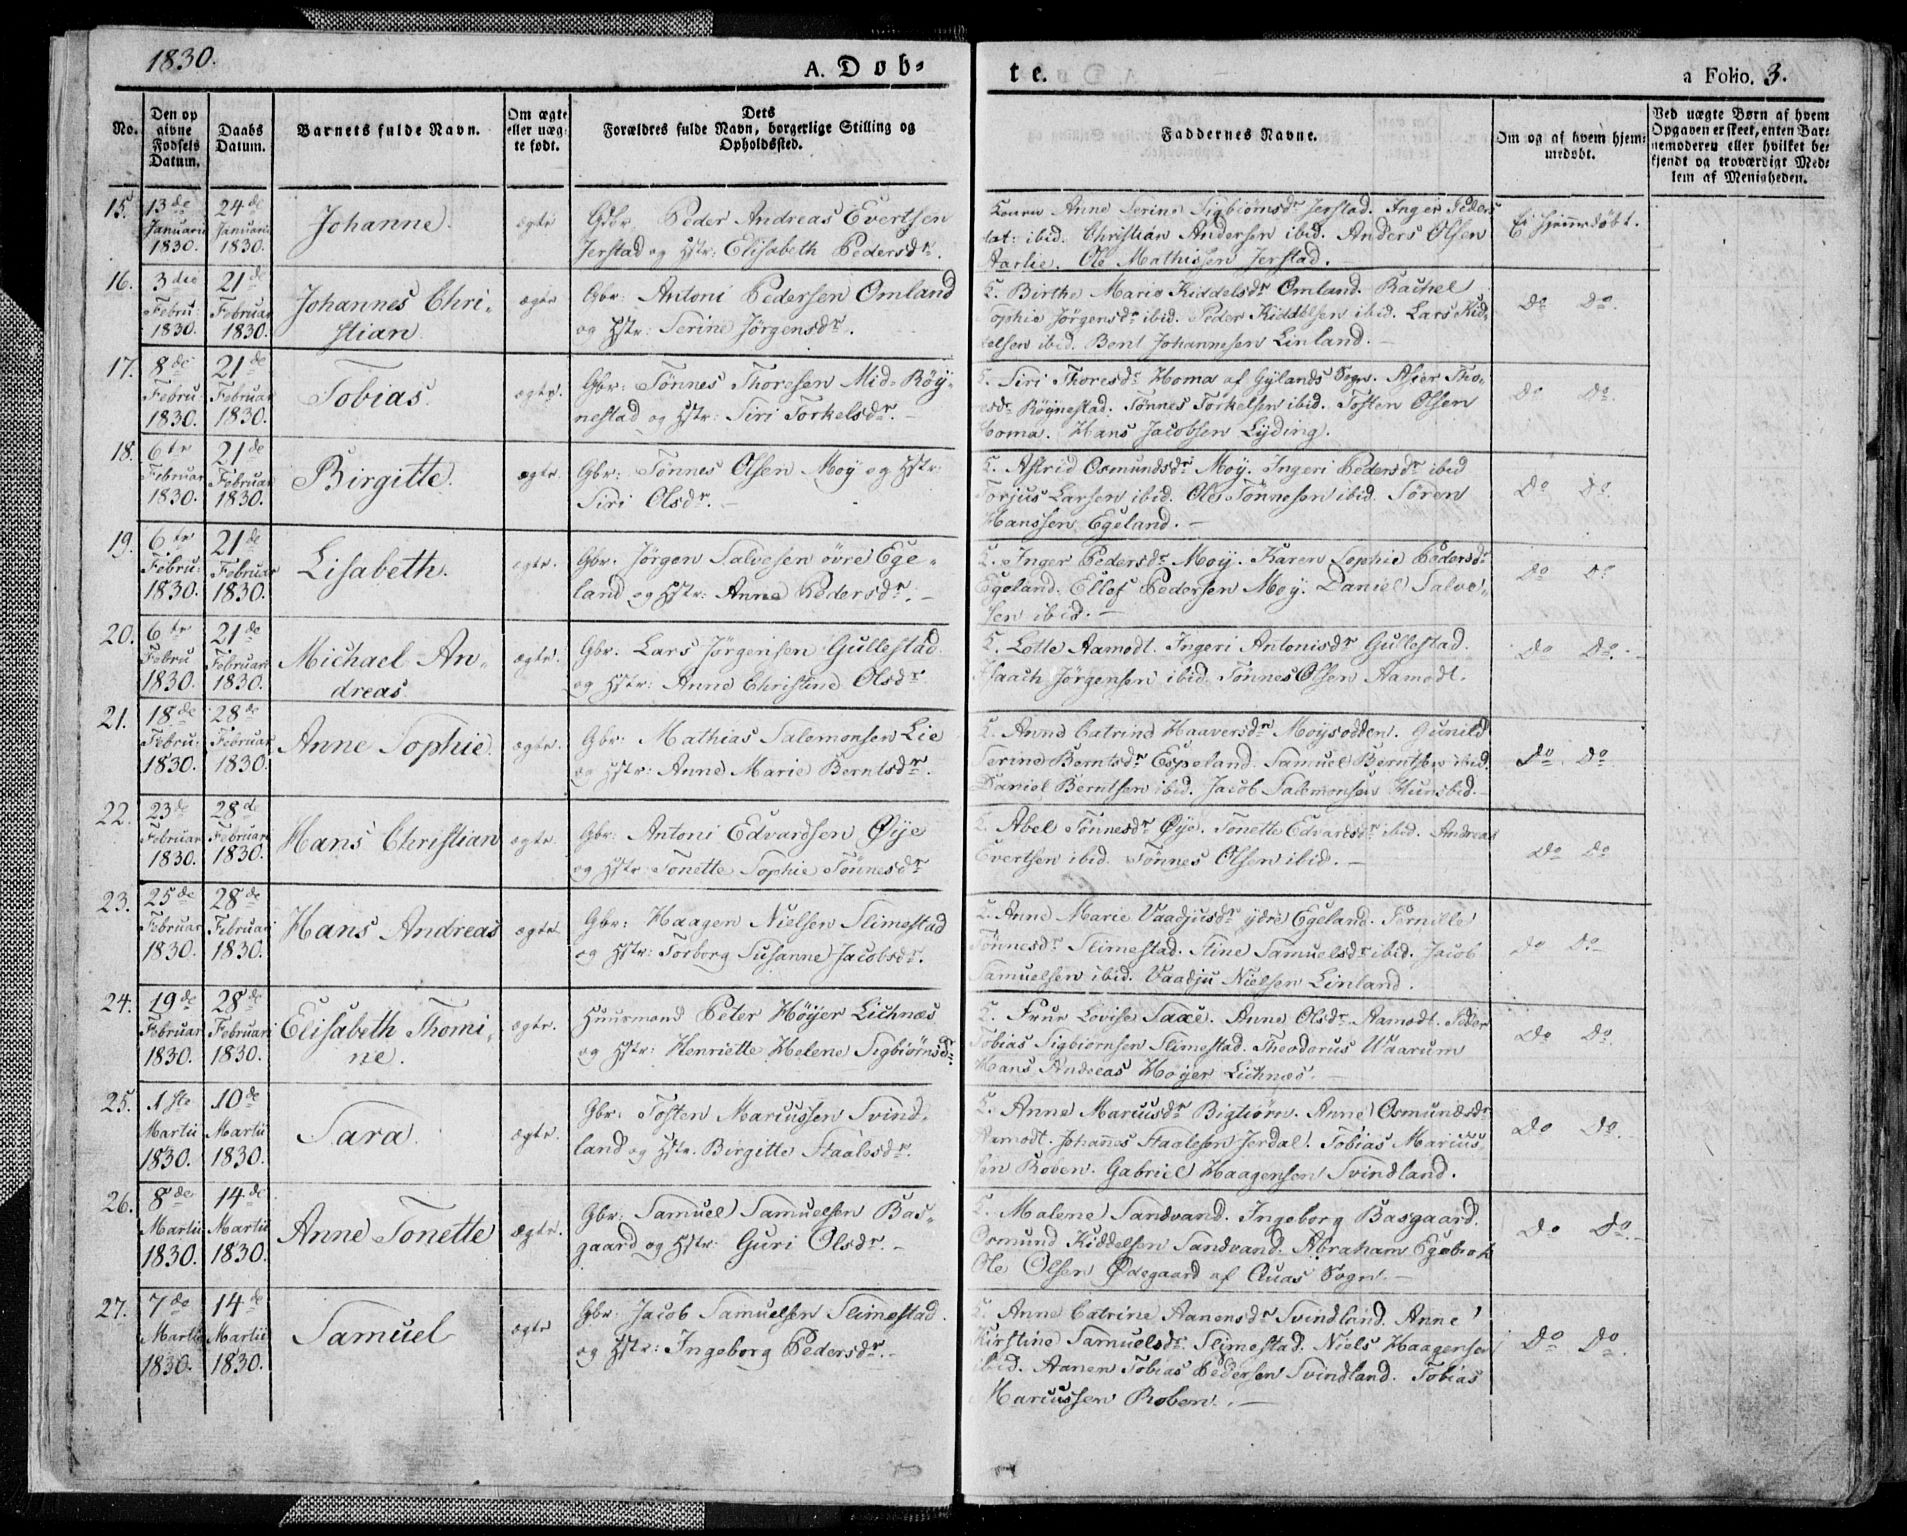 1830.
A. Dob-
te.
a Folio. 3.
No.
Den op
givne
Fødsels
Datum.
Daabs
Datum.
Barnets fulde Navn.
Om ægte
eller uæg-
te født.
Dets
Forældres fulde Navn, borgerlige Stilling og
Opholdssted.
Faddernes Navne.
Om og af hvem hjem-
medøbt.
Ved uægte Børn af hvem
Opgaven er skeet, enten Bar-
nemoderen eller hvilket be-
kjendt og troværdigt Med-
lem af Menigheden.
15.
13de
Januarii
1830.
24de
Januarii
1830.
Johanne.
ægte
Gbr: Peder Andreas Evertsen
Jerstad og Hstr: Elisabeth Pedersdr.
Anne Serine Sigbiørnsdr Jerstad. Inger Peders
dat: ibid. Christian Andersen ibid. Anders Olsen
Aarlie. Ole Mathissen Jerstad.
Ei hjemmedøbt.
16.
3die
Febru:
1830.
21de
Februar
1830.
Johannes Chri-
stian
ægte
Gbr: Antoni Pedersen Omland
og Hstr: Serine Jørgensdr.
K. Birthe Marie Kiddelsdr Omland. Rachel
Sophie Jørgensdr ibid. Peder Kiddelsen ibid. Lars Kid-
delsen ibid. Bent Johannesen Linland.
Do Do.
17.
8de
Febru
1830.
21de
Februar
1830.
Tobias.
ægte.
Gbr: Tønnes Thoresen Mid-Røy-
nestad og Hstr: Siri Torkelsdr.
K. Siri Thoresdr Homa af Gylands Sogn. Asier Tho-
resdr Røynestad. Tønnes Torkelsen ibid. Tosten Olsen
Homa. Hans Jacobsen Lyding.
Do Do.
18.
6te
Februar
1830.
21de
Februar
1830.
Birgitte.
ægte.
Gbr: Tønnes Olsen Moy og Hstr:
Siri Olsdr.
K. Astrid Osmundsdr Moy. Ingeri Pedersdr ibid
Torjus Larsen ibid. Ole Tønnesen ibid. Søren
Hanssen Egeland.
Do Do.
19.
6te
Febru.
1830.
21de
Februar
1830.
Lisabeth.
ægte.
Gbr. Jørgen Salvesen øvre Ege-
land og Hstr: Anne Pedersdr.
K. Inger Pedersdr Moy. Karen Sophie Pedersdr
Egeland. Ellef Pedersen Moy. Daniel Salve-
sen ibid.
Do Do
20.
6te
Febru
1830.
21de
Februari
1830.
Michael An-
dreas
ægte.
Gbr. Lars Jørgensen Gullestad
og Hstr: Anne Christine Olsdr
K. Lotte Aamodt. Ingeri Antonisdr Gullestad.
Isaach Jørgensen ibid. Tønnes Olsen Aamodt.
Do Do.
21.
18de
Febru:
1830.
28de
Februar
1830.
Anne Sophie.
ægte.
Gbr: Mathias Salomonsen Lie
og Hstr: Anne Marie Berntsdr.
K. Anne Catrine Haaversdr Moysodden. Gunild
Serine Berntsdr Espeland. Samuel Berntsen ibid.
Daniel Berntsen ibid. Jacob Salomonsen Hunsbid.
Do. Do.
22.
23de
Februar
1830.
28de
Februari
1830.
Hans Christian
ægte.
Gbr: Antoni Edvardsen Øye
og Hstr: Tonette Sophie Tønnesdr
K. Abel Tønnesdr Øye. Tonette Edvardsdr ibid. Andreas
Evertsen ibid. Tønnes Olsen ibid.
Do Do
23.
25de
Februar
1830.
28de
Februari
1830.
Hans Andreas
ægte.
Gbr: Haagen Nielsen Slimestad
og Hstr: Torborg Susanne Jacobsdr.
K. Anne Marie Vaadjusdr ydre Egeland. Pernille
Tønnesdr Slimestad. Stine Samuelsdr ibid. Jacob
Samuelsen ibid. Vaadju Nielsen Linland.
Do Do
24.
19de
Februar
1830.
28de
Februari
1830.
Elisabeth Thomi-
ne.
ægte.
Huusmand Peter Høyer Lichnæs
og Hstr: Henriette Helene Sigbiørnsdr
K. Frue Lovise Saxe. Anne Olsdr Aamodt. Peder
Tobias Sigbiørnsen Slimestad. Theodorus Waarum
Hans Andreas Høyer Lichnæs.
Do Do.
25.
1ste
Martii
1830.
10de
Martii
1830.
Sara.
ægte.
Gbr: Tosten Marcussen Svind-
land og Hstr. Birgitte Staalesdr.
K. Anne Marcusdr Bigtiørn. Anne Osmundsdr
Aamodt. Johanes Staalesen Jerdal. Tobias Marcus-
sen Roben. Gabriel Haagensen Svindland.
Do Do.
26.
8de
Martii
1830.
14de
Martii
1830.
Anne Tonette
ægte.
Gbr: Samuel Samuelsen Bas-
gaard og Hstr: Guri Olsdr.
K. Malene Sandvand. Ingeborg Basgaard.
Osmund Kiddelsen Sandvand. Abraham Egeb
Ole Olsen Ødegaard af Quas Sogn.
Do Do.
27.
7de
Martii
1830.
14de
Martii
1830.
Samuel
ægte
Gbr. Jacob Samuelsen Slimestad.
og Hstr: Ingeborg Pedersdr.
K. Anne Catrine Aanensdr Svindland. Anne
Kirstine Samuelsdr Slimestad. Niels Haagensen
ibid. Aanen Tobias Pedersen Svindland. Tobias
Marcussen Roben.
Do Do.